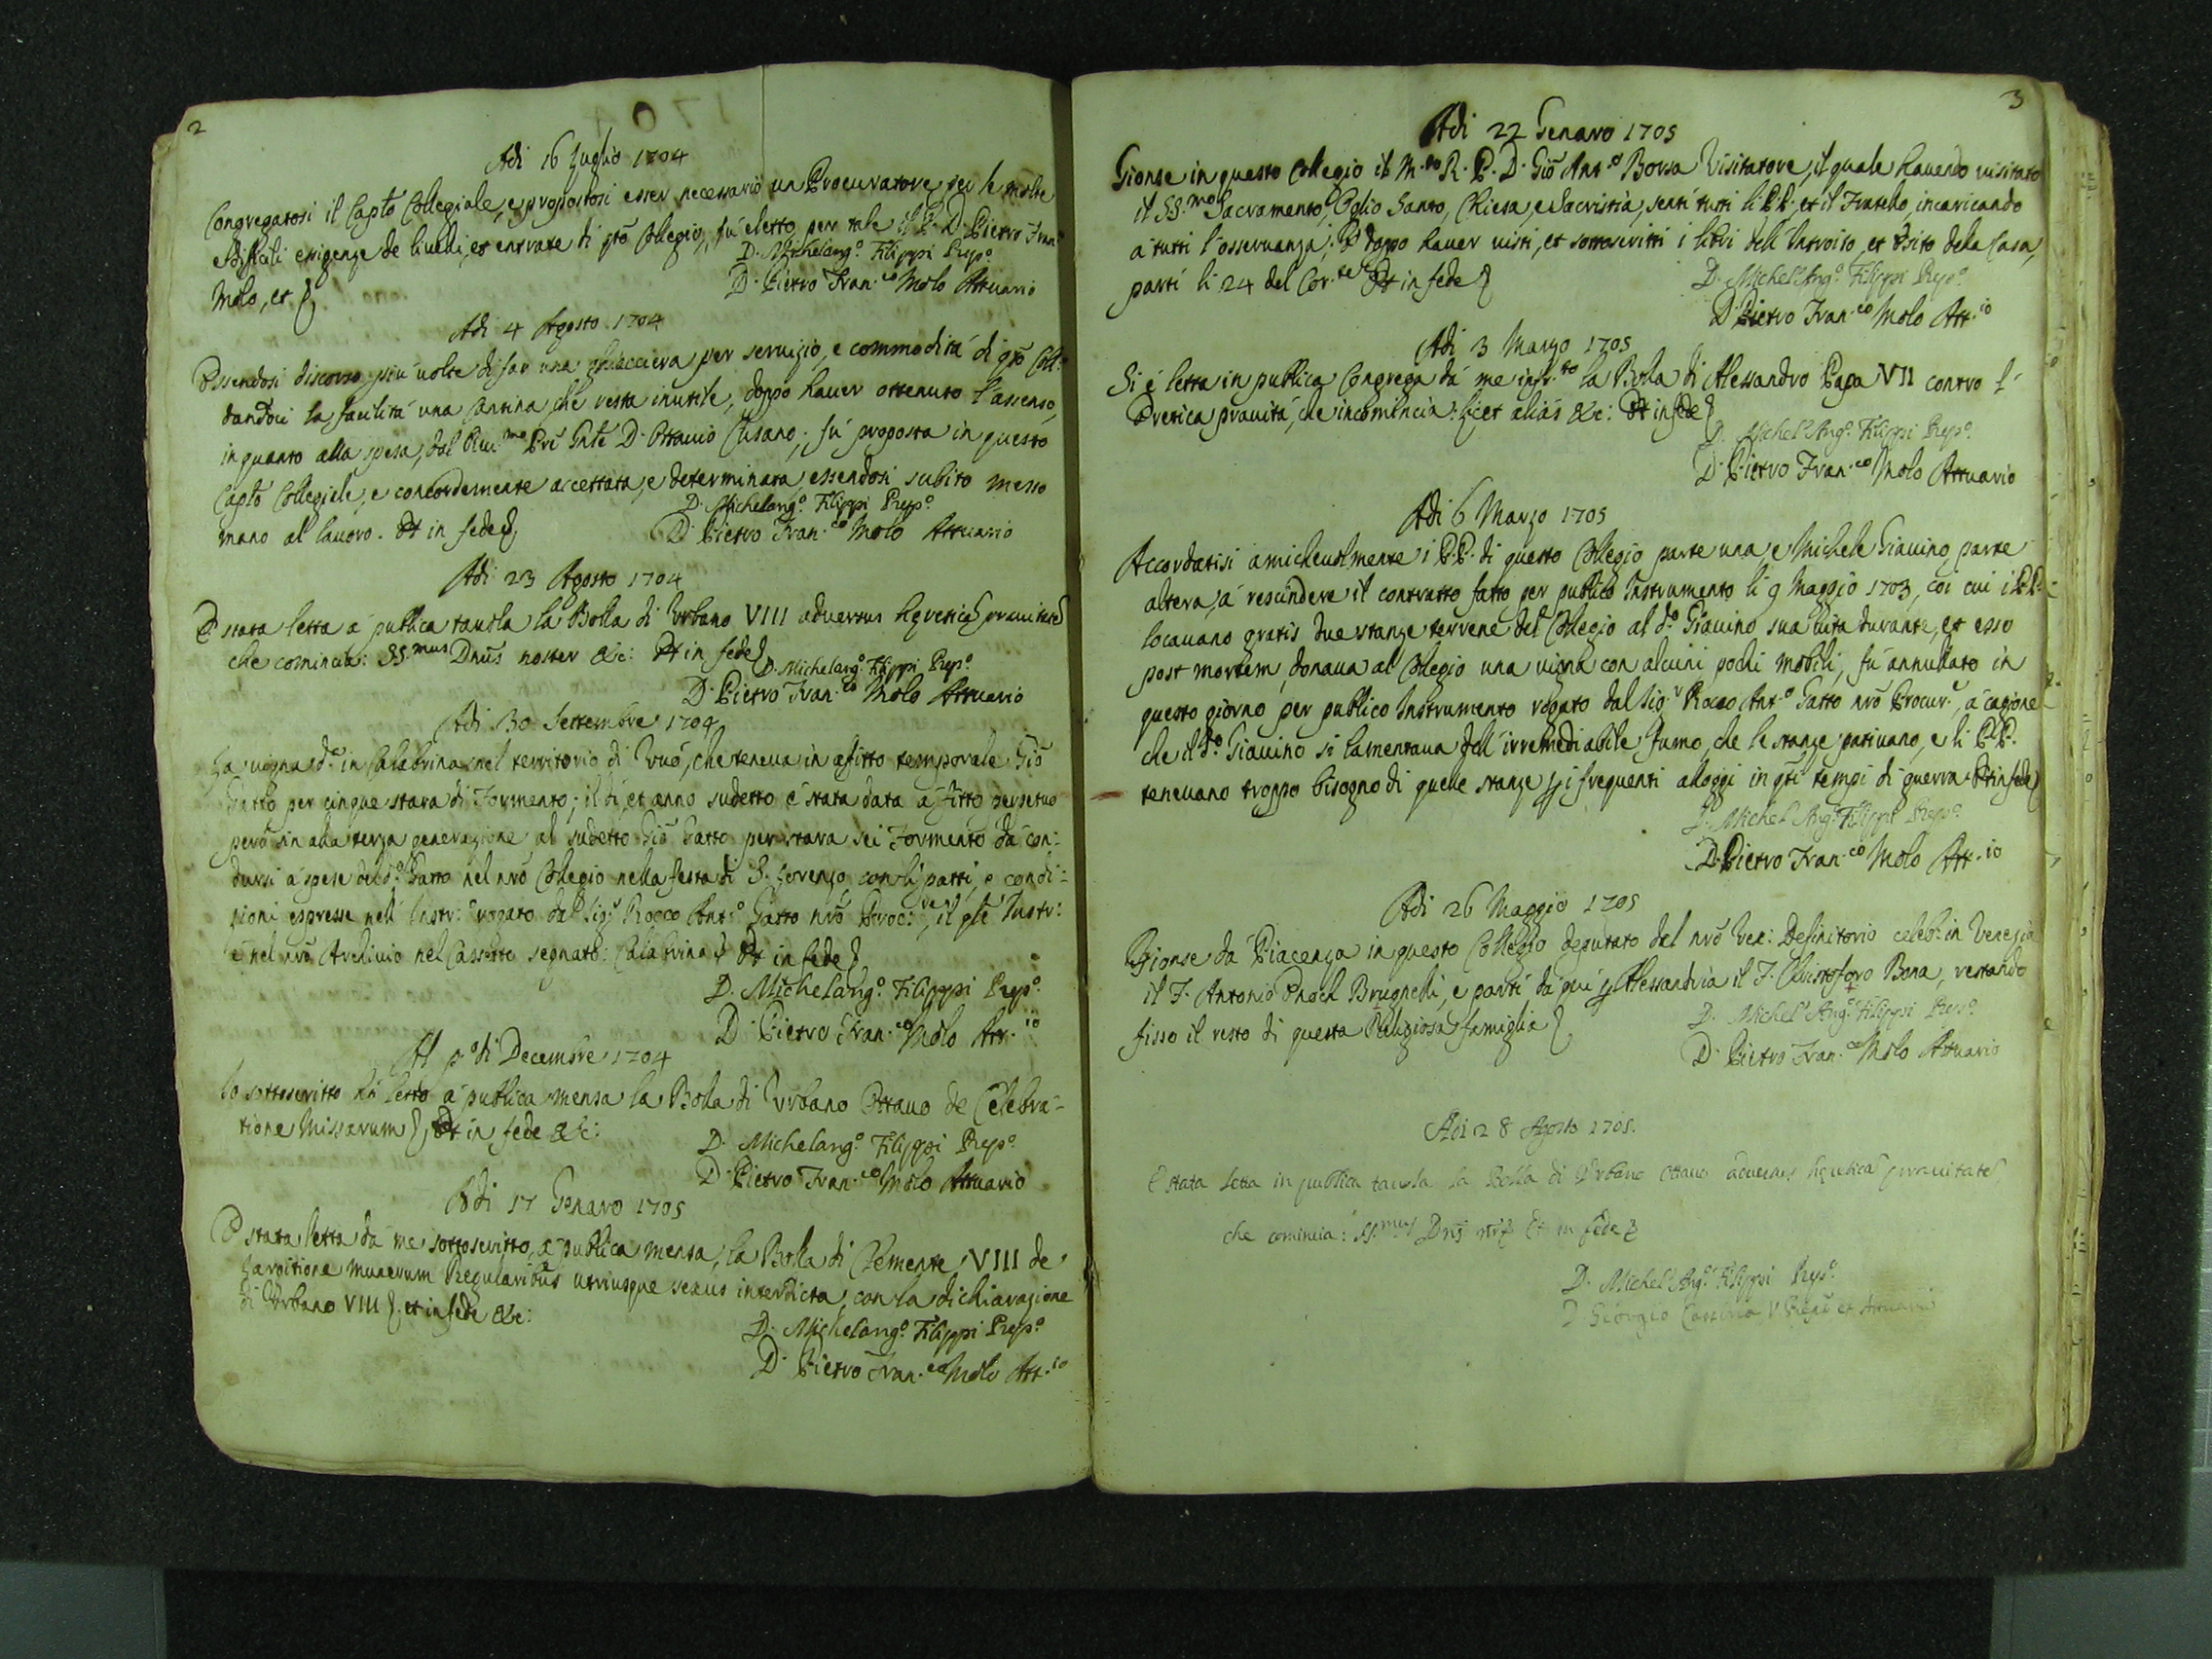 2
Adi 16 Luglio 1704
Congregatosi il Caplo Collegiale, e propostosi esser necessario un Procuratore per le molte
e difficili exigenze de livelli, et entrate di qto Collegio, fù eletto per tale il P. D. Pietro Fran.co
Molo, et
D. Michelang.o Filippi Prep.o
D. Pietro Fran.co Molo Attuario
Adi 4 Agosto 1704
Essendosi discorso più volte di far una ghiacciera per servizio, e commodità di qto Coll.o
dandoci la facilità una Cantina che resta inutile, doppo haver ottenuto l'assenso,
in quanto alla spesa, dal Rmo Pre Gnle D. Ottavio Cusano; fù proposta in questo
Caplo Collegiale, e concordemente accettata, e determinata, essendosi subito messo
mano al lavoro. Et in fede
D. Michelang.o Filippi Prep.o
D. Pietro Fran.co Molo Attuario
Adi 23 Agosto 1704
È stata letta a publica tavola la Bolla di Urbano VIII adversus hereticā pravitatē
che comincia: SS.mus Dnus noster &c: Et in fede
D. Michelang.o Filippi Prep.o
D. Pietro Fran.co Molo Attuario
Adi 30 Settembre 1704
La vigna d.a in Calabrina nel territorio di Vuò, che teneva in afitto temporale Giō
Gatto per cinque stara di Formento; il dì, et anno sudetto è stata data a fitto perpetuo
però sin alla terza generazione al sudetto Giō Gatto per stara sei Formento da con:
dursi a spese del d.o Gatto nel nrō Collegio nella festa di S. Lorenzo con li patti, e condi:
zioni espresse nell'Instr:o rogato dal Sig.r Rocco Ant.o Gatto nrō Proc:re, il qle Instr:
è nel nrō Archivio nel Cassetto segnato: Calabrina Et in fede
D. Michelang.o Filippi Prep.o
D. Pietro Fran.co Molo Att.io
Al p.o di Decembre 1704
Io sottoscritto hò letto à publica mensa la Bolla di Urbano Ottavo de Celebra-
tione Missarum, Et in fede &c:
D. Michelang.o Filippi Prep.o
D. Pietro Fran.co Molo Attuario
Adi 17 Genaro 1705
È stata letta da me sottoscritto, à publica mensa, la Bolla di Clemente VIII de
Largitione munerum Regularibus utriusque sexus interdicta, con la dichiarazione
di Urbano VIII. et in fede &c:
D. Michelang.o Filippi Prep.o
D. Pietro Fran.co Molo Att.io
3
Adi 22 Genaro 1705
Gionse in questo Collegio il M.to R. P. D. Giō Ant.o Borsa Visitatore, il quale havendo visitato
il SS.mo Sacramento, Oglio Santo, Chiesa, e Sacristia, sentì tutti li PP. et il Fratello, incaricando
a tutti l'osservanza; E doppo haver visti, et sottoscritti i libri dell'Introito, et Esito della Casa,
partì li 24 del Cor.te Et in fede
D. Michel Ang.o Filippi Prep.o
D. Pietro Fran.co Molo Att.io
Adi 3 Marzo 1705
Si è letta in publica Congrega da me infr.to la Bolla di Alessandro Papa VII contro l'
Eretica pravità, che incomincia: Licet aliàs &c: Et in fede
D. Michel Ang.o Filippi Prep.o
D. Pietro Fran.co Molo Attuario
Adi 6 Marzo 1705
Accordatisi amichevolmente i P.P. di questo Collegio parte una, e Michele Giavino parte
altera, à rescindere il contratto fatto per publico Instrumento li 9 Maggio 1703, coi cui i PP.
locavano gratis due stanze terrene del Collegio al d.o Giavino sua vita durante, et esso
post mortem, donava al Collegio una vigna con alcuini pochi mobili, fù annullato in
questo giorno per publico Instrumento rogato dal Sig.r Rocco Ant.o Gatto nrō Procur.e, à cagione
che il d.o Giavino si lamentava dell'irremediabile fumo, che le stanze pativano, e li P.P.
tenevano troppo bisogno di quelle stanze p i frequenti alloggi in qti tempi di guerra. Et in fede
D. Michel Ang.o Filippi Prep.o
D. Pietro Fran.co Molo Att.io
Adi 26 Maggio 1705
Gionse da Piacenza in questo Collegio deputato dal nrō Ven: Definitorio celeb.o in Venezia
il F. Antonio Brugnelli, e partì da qui p Alessandria il F. Christoforo Bona, restando
fisso il resto di questa Religiosa famiglia
D. Michel Ang.o Filippi Prep.o
D. Pietro Fran.co Molo Attuario
Adi 28 Agosto 1705.
È stata letta in publica tavola la Bolla di Urbano Ottavo adversus hereticā pravitatē
che comincia: SS.mus Dns nr Et in fede
D. Michel Ang.o Filippi Prep.o
D. Giorgio et Attuario